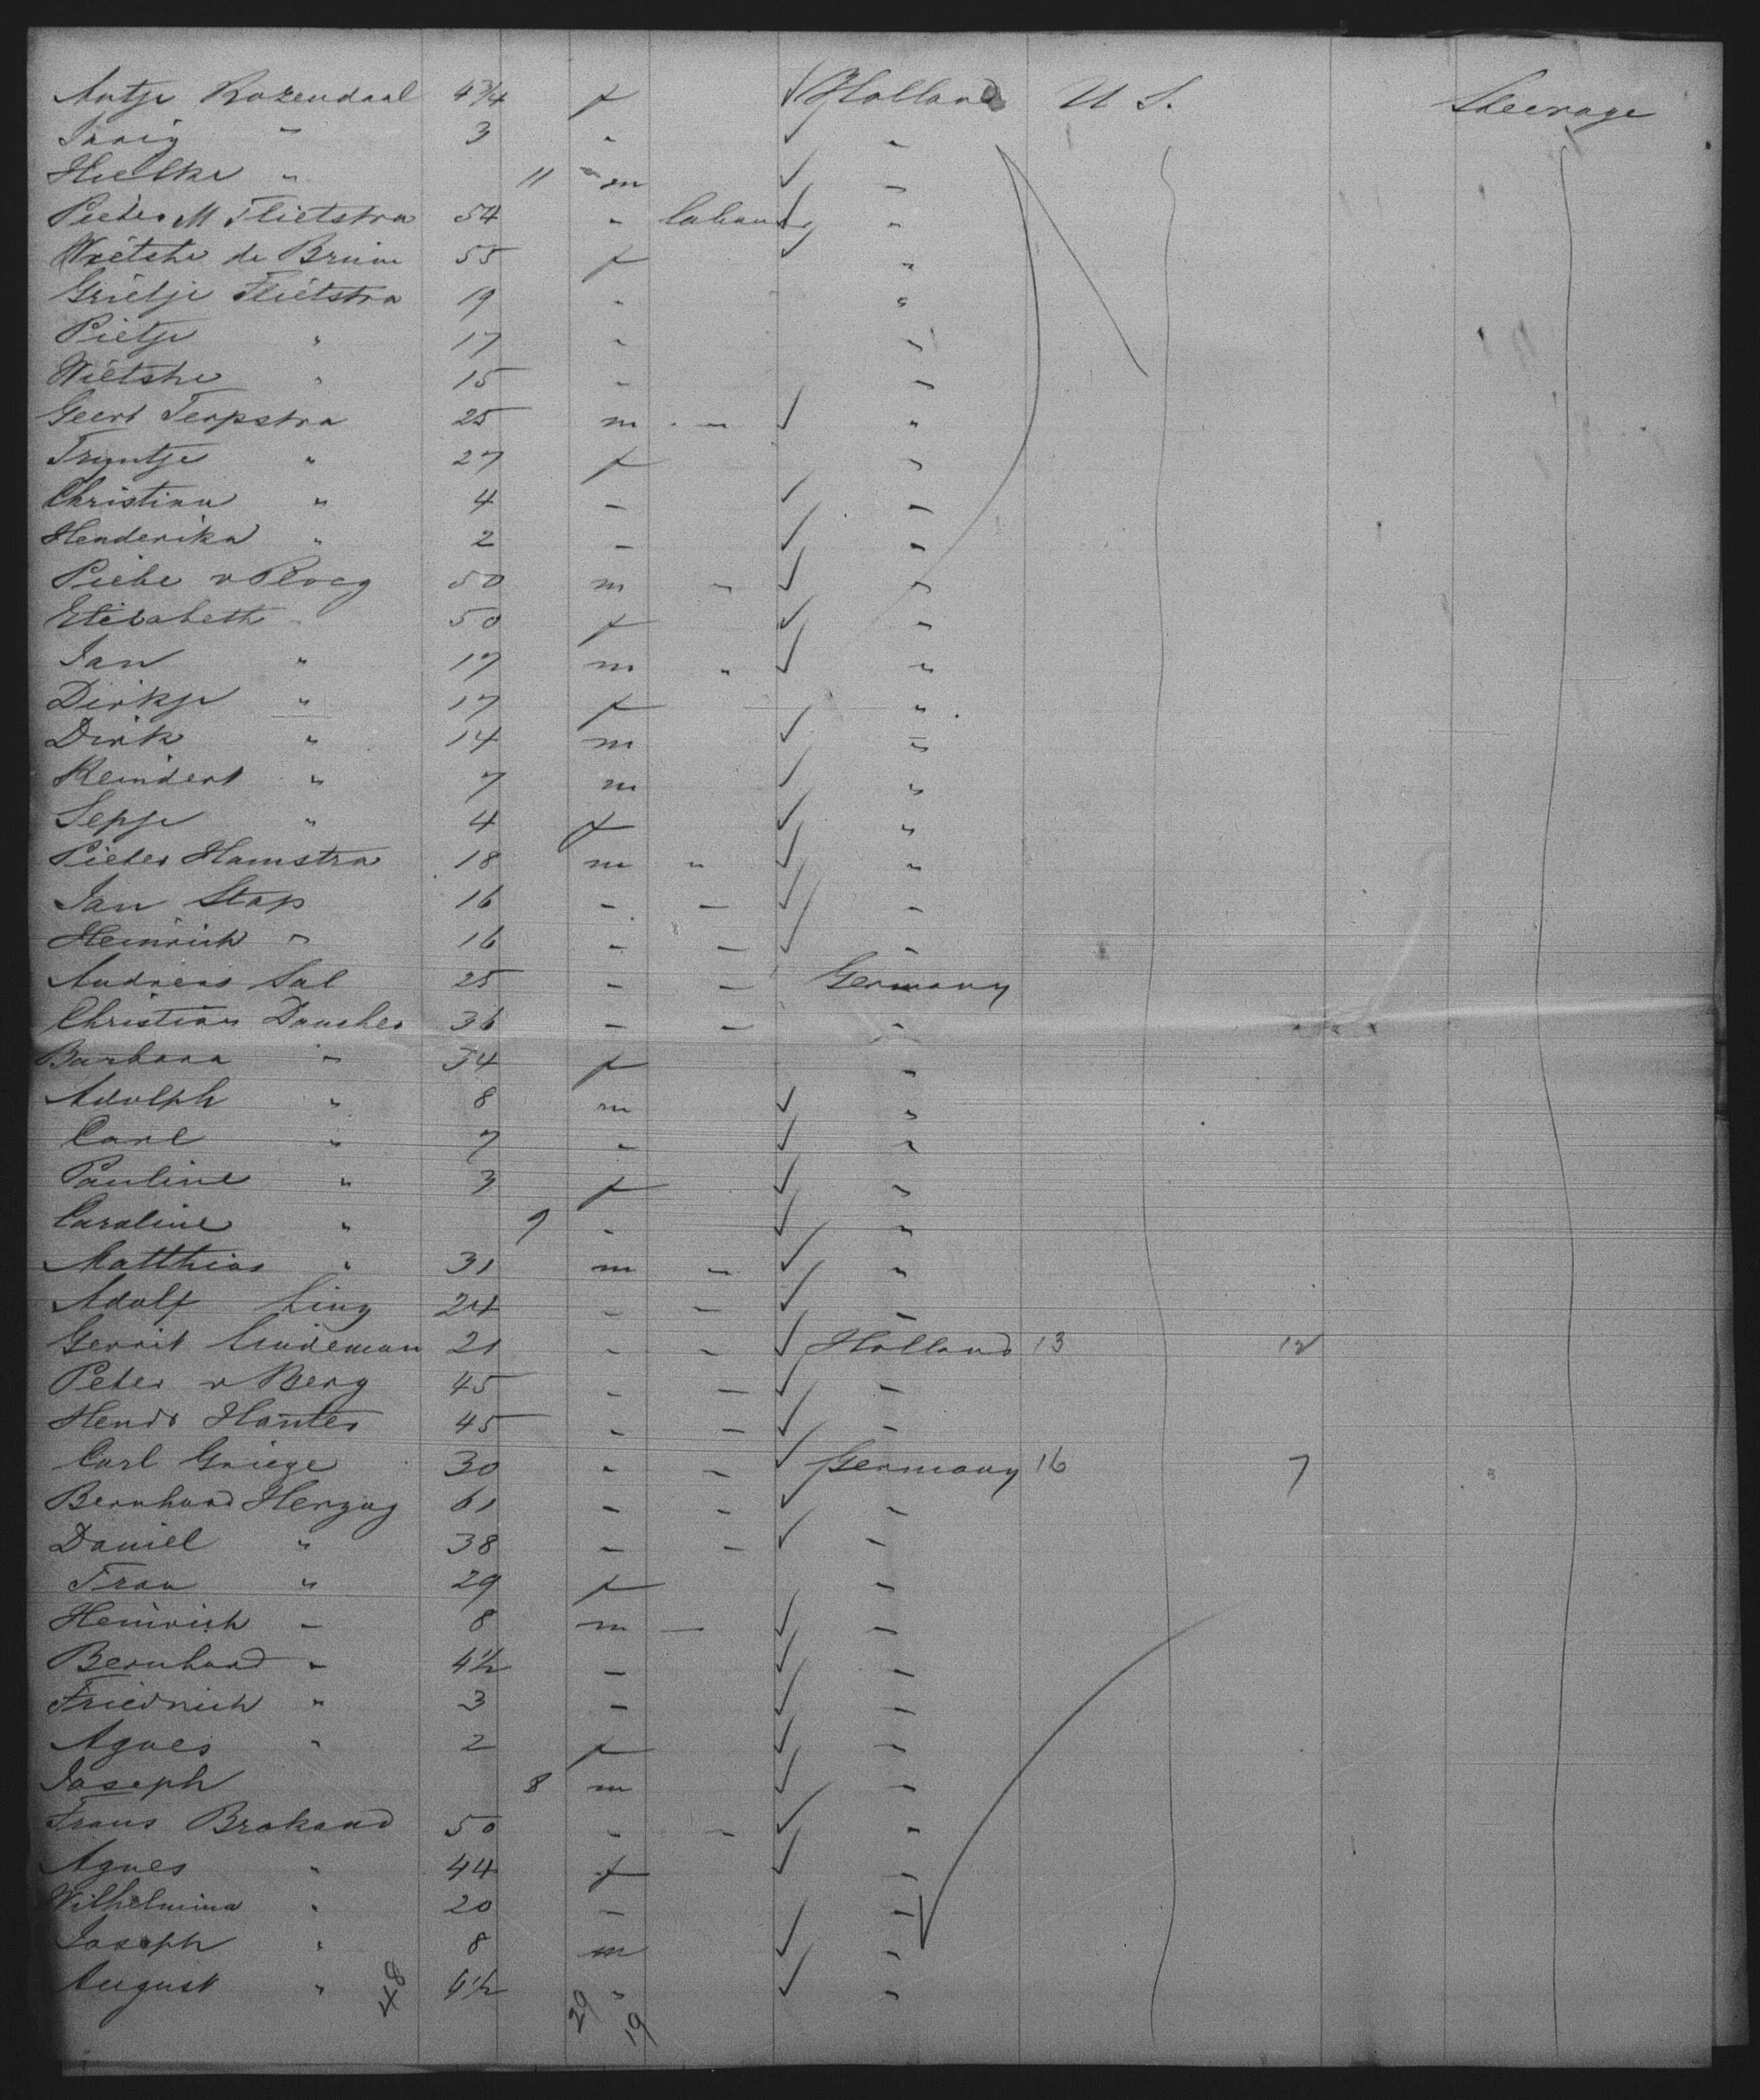 Antje Rozendaal 4 3/4 f ✓ Holland U S. Steerage
Traig " 3 " ✓ "
Hielke " 11 m ✓ "
Pieter M Flietstra 54 " labourer ✓ "
Wietske de Bruin 55 f ✓ "
Grietje Flietstra 19 " "
Pietje " 17 " "
Wietske " 15 " "
Geert Terpstra 25 m " ✓ "
Tryntje " 27 f "
Christina " 4 " ✓ "
Henderika " 2 " ✓ "
Piebe v Ploeg 50 m " ✓ "
Elizabeth " 50 f ✓ "
Jan " 17 m " ✓ "
Dirkje " 17 f "
Dirk " 14 m ✓ "
Reindert " 7 m ✓ "
Sepje " 4 f ✓ "
Pieter Hamstra 18 m " ✓ "
Jan Stap 16 " " ✓ "
Heinrich " 16 " " ✓ "
Andreas Sal 25 " " Germany
Christian Dauscher 36 " " "
Barbara " 34 f "
Adolph " 8 m ✓ "
Carl " 7 " ✓ "
Pauline " 3 f ✓ "
Caroline " 9 " ✓ "
Matthias " 31 m " ✓ "
Adolf Ling 24 " " ✓ "
Gerrit Lindeman 21 " " ✓ Holland 13 12
Peter v Berg 45 " " ✓ "
Hendr Hantes 45 " " ✓ "
Carl Griege 30 " " ✓ Germany 16 7
Bernhard Herzog 61 " " ✓ "
Daniel " 38 " " ✓ "
Frau " 29 f "
Heinrich " 8 m " ✓ "
Bernhard " 4 1/2 " ✓ "
Friedrich " 3 " ✓ "
Agnes " 2 f ✓ "
Joseph 8 m ✓ "
Frans Brokand 50 " " ✓ "
Agnes " 44 f ✓ "
Wilhelmina " 20 " "
Joseph " 8 m ✓ "
August " 4 1/2 " ✓ "
48 29 19